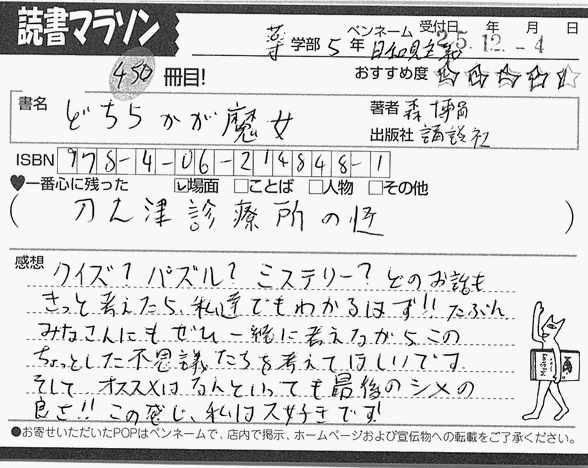 読書マラソン
学部 5年
ペンネーム 日和見主義
受付日 年 月 日
25.12.-4
450 冊目!
おすすめ度
書名 どちらかが魔女
著者 森 博嗣
出版社 講談社
ISBN 978-4-06-214848-1
♥一番心に残った ☑場面 □ことば □人物 □その他
(刀之津診療所の怪)
感想 クイズ?パズル?ミステリー?どのお話も
きっと考えたら、私達でもわかるはず!!たぶん
みなさんにもぜひ一緒に考えながらこの
ちょっとした不思議たちを考えてほしいです。
そしてオススメはなんといっても最後のシメの
良さ!!この感じ、私は大好きです!
●お寄せいただいたPOPはペンネームで、店内で掲示、ホームページおよび宣伝物への転載をご了承ください。